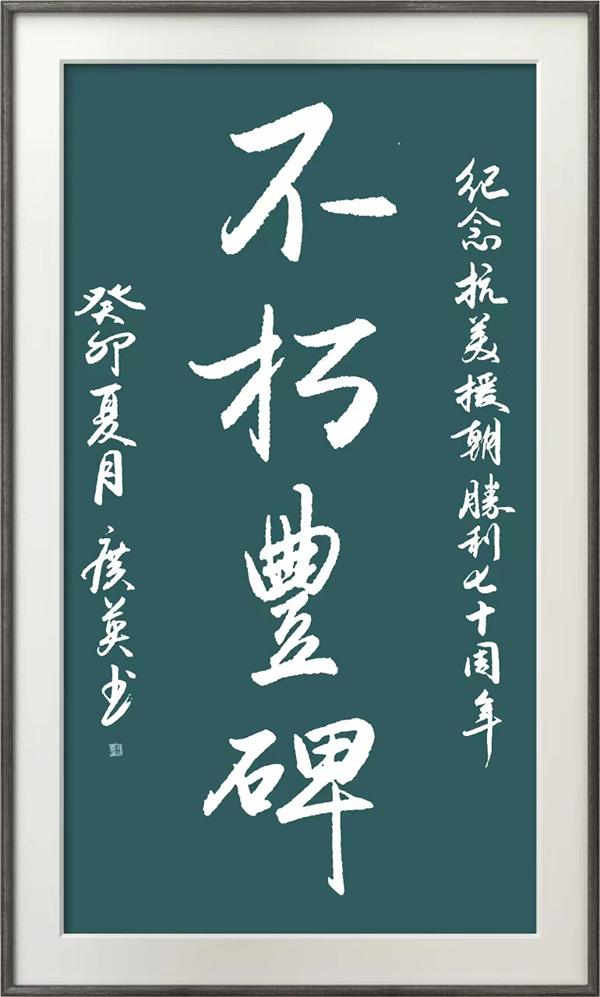 紀念抗美援朝勝利七十周年
不朽豐碑
癸卯夏月 广英书